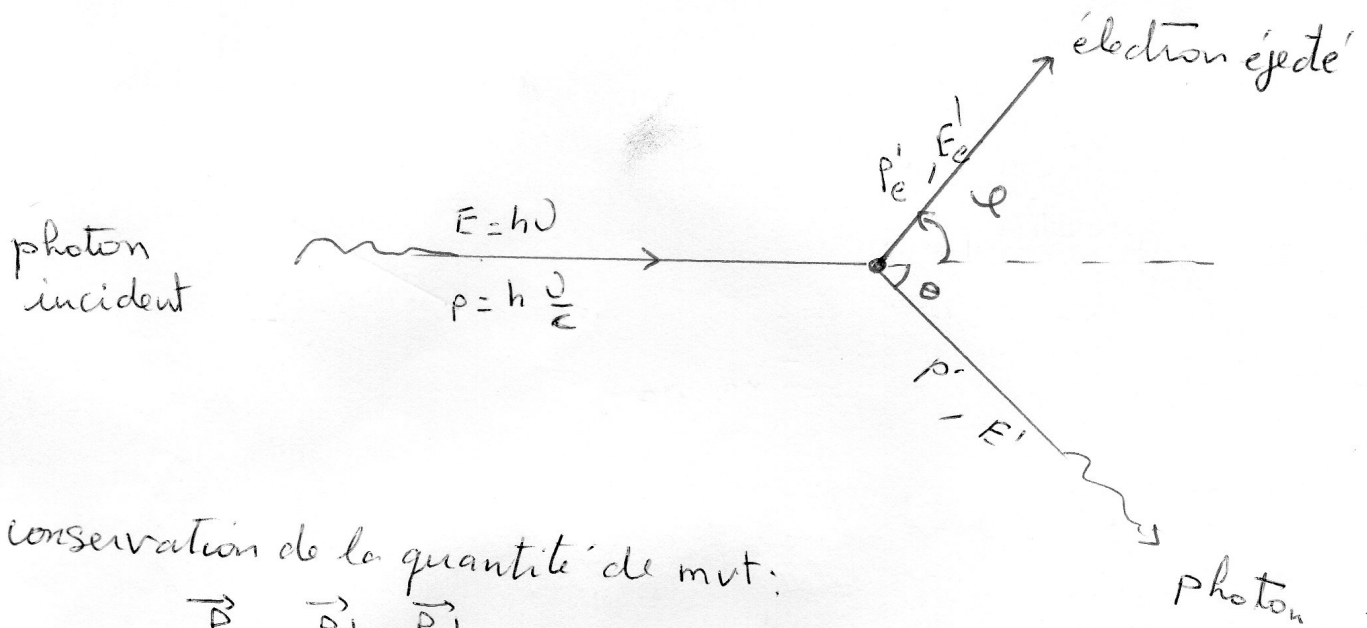 électron éjecté
P'e, E'e
φ
photon
incident
E = hν
p = h ν/c
θ
p-
- E'
conservation de la quantité de mvt:
photon